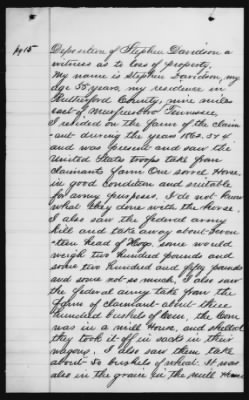 pg 15
Deposition of Stephen Davidson a
witness as to loss of property.
My name is Stephen Davidson, my
age 55 years, my residence in
Rutherford County, nine miles
east of Murfreesboro Tennessee.
I resided on the farm of the claim-
-ant during the years 1862, 3 & 4
and was present and saw the
United States troops take from
claimants farm One sorrel Horse
in good condition and suitable
for army purposes. I do not know
what they done with the Horse.
I also saw the federal army
kill and take away about seven-
-teen head of Hogs, some would
weigh two hundred pounds and
some two hundred and fifty pounds
and some not so much. I also saw
the federal army take from the
farm of claimant about three
hundred bushels of Corn, the Corn
was in a mill House, and shelled
they took it off in sacks in their
wagons. I also saw them take
about 50 bushels of wheat. It was
also in the grain in the mill House